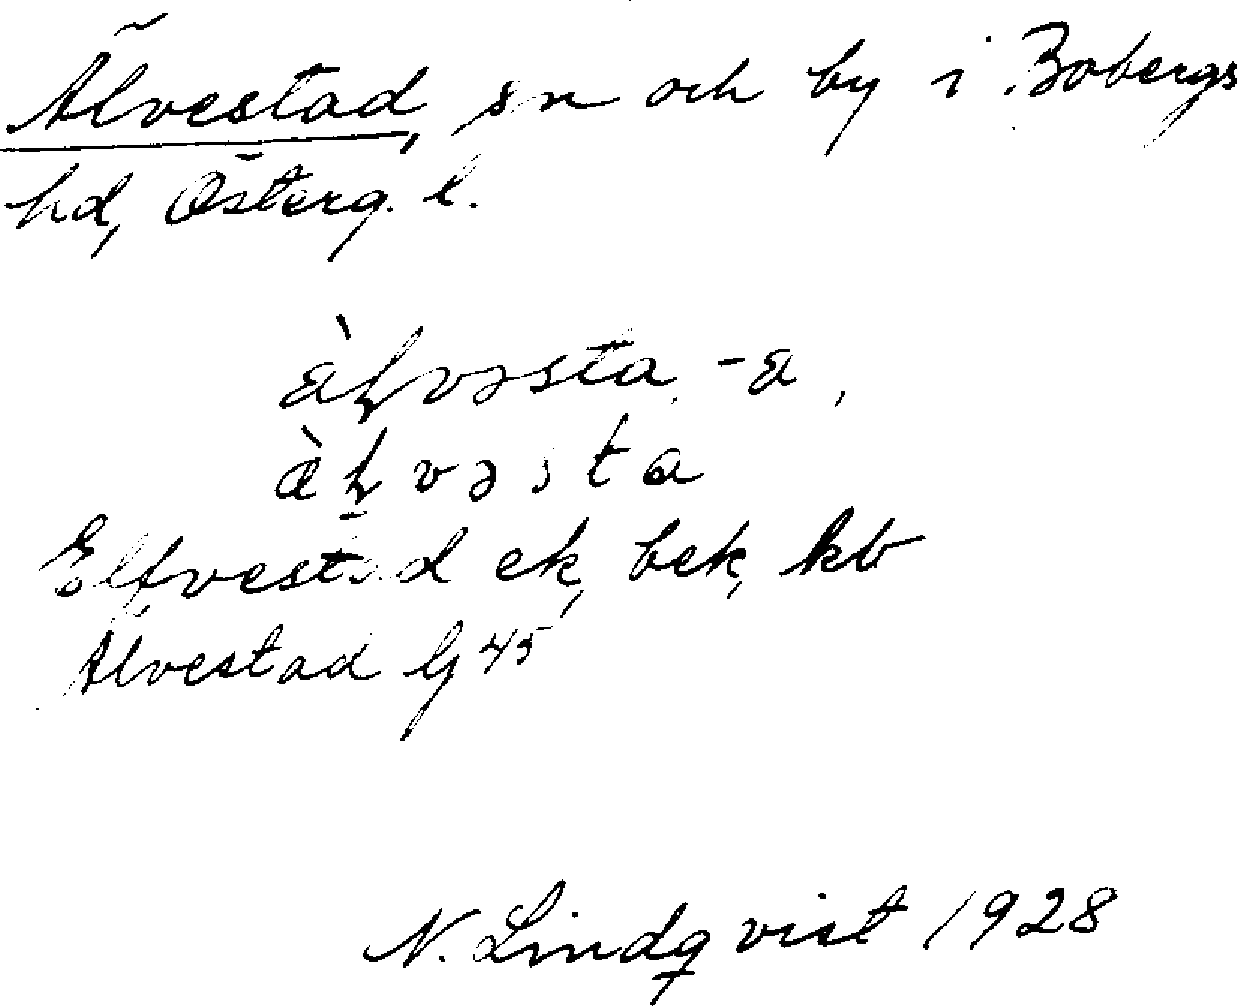 Älvestad, sn och by i Bobergs
hd, Österg. l.
æ̀ḷvəsta, -a,
æ̀ḷvəsta
Elfvestad ek, bek, kb
Älvestad G 45
N. Lindqvist 1928